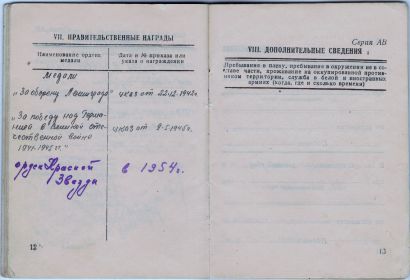 VII. ПРАВИТЕЛЬСТВЕННЫЕ НАГРАДЫ
Наименование ордена, медали
Дата и № приказа или указа о награждении
Медали
„За оборону Ленинграда"
указ от 22.12.1942г.
„За победу над Германией в Великой отечественной войне 1941-1945 гг."
указ от 9-5-1945г.
орден Красной Звезды
в 1954 г.
12
Серия АВ
VIII. ДОПОЛНИТЕЛЬНЫЕ СВЕДЕНИЯ
Пребывание в плену, пребывание в окружении не в со-
ставе части, проживание на оккупированной против-
ником территории, служба в белой и иностранных
армиях (когда, где и сколько времени)
13